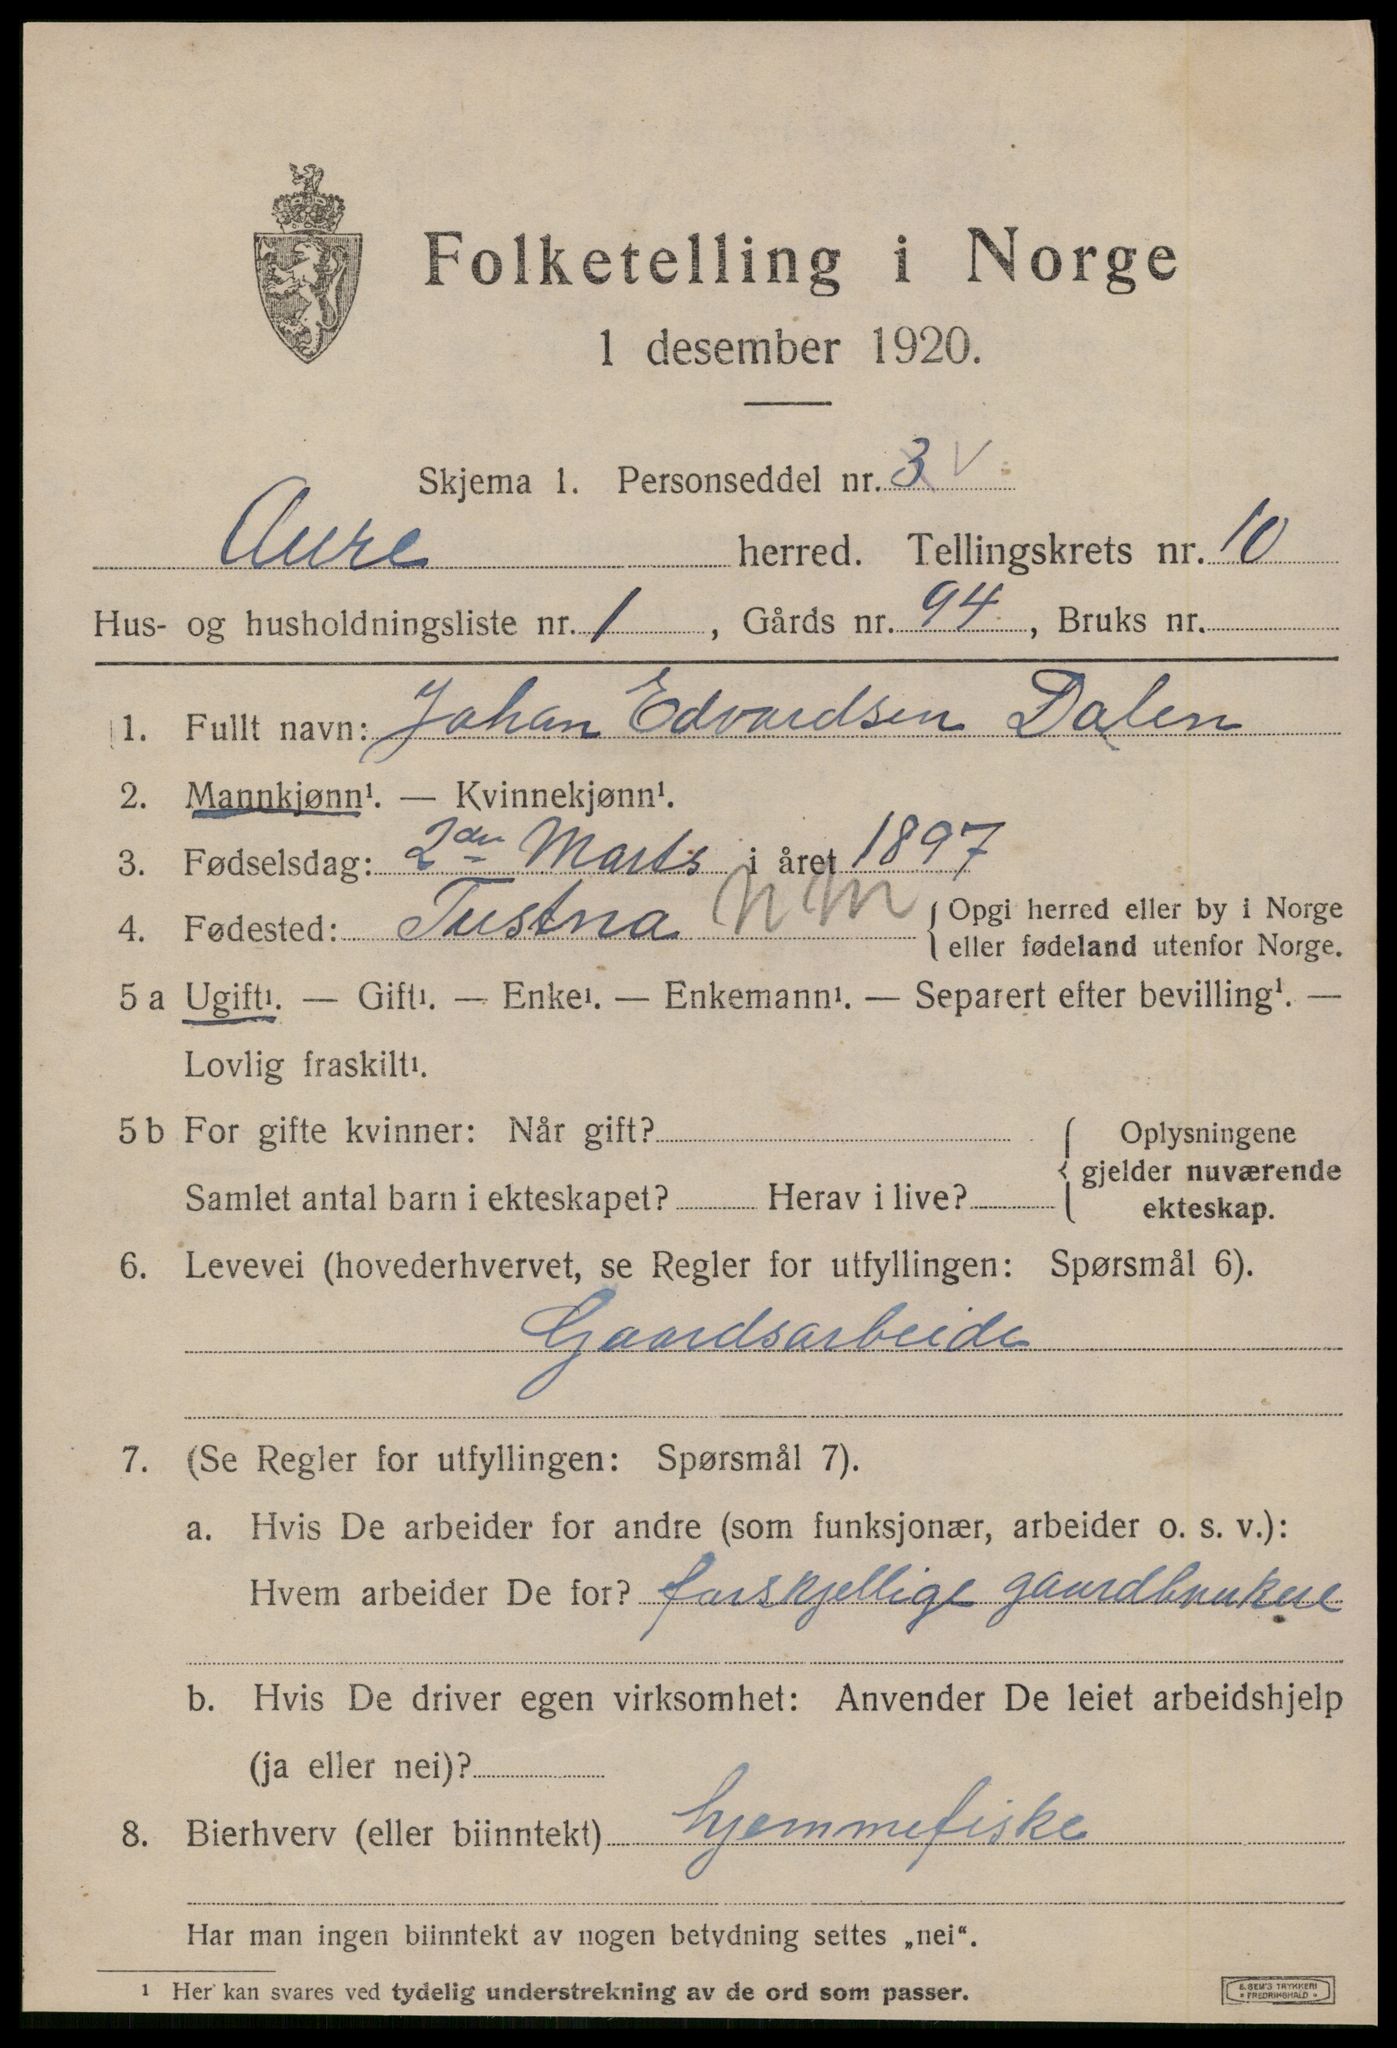 Folketelling i Norge
1 desember 1920.
Skjema 1. Personseddel nr. 3 V
Aure herred. Tellingskrets nr. 10
Hus- og husholdningsliste nr. 1, Gårds nr. 94, Bruks nr.
1. Fullt navn: Johan Edvardsen Dalen
2. Mannkjønn¹. — Kvinnekjønn¹.
3. Fødselsdag: 2den Marts i året 1897
4. Fødested: Tustna N M { Opgi herred eller by i Norge
eller fødeland utenfor Norge.
5 a Ugift¹. — Gift¹. — Enke¹. — Enkemann¹. — Separert efter bevilling¹. —
Lovlig fraskilt¹.
5 b For gifte kvinner: Når gift? { Oplysningene
gjelder nuværende
Samlet antal barn i ekteskapet? Herav i live? ekteskap.
6. Levevei (hovederhvervet, se Regler for utfyllingen: Spørsmål 6).
Gaardsarbeide
7. (Se Regler for utfyllingen: Spørsmål 7).
a. Hvis De arbeider for andre (som funksjonær, arbeider o. s. v.):
Hvem arbeider De for? forskjellige gaardbrukere
b. Hvis De driver egen virksomhet: Anvender De leiet arbeidshjelp
(ja eller nei)?
8. Bierhverv (eller biinntekt) hjemmefiske
Har man ingen biinntekt av nogen betydning settes „nei“.
¹ Her kan svares ved tydelig understrekning av de ord som passer.
E. SEM'S TRYKKERI
* FREDRIKSHALD *